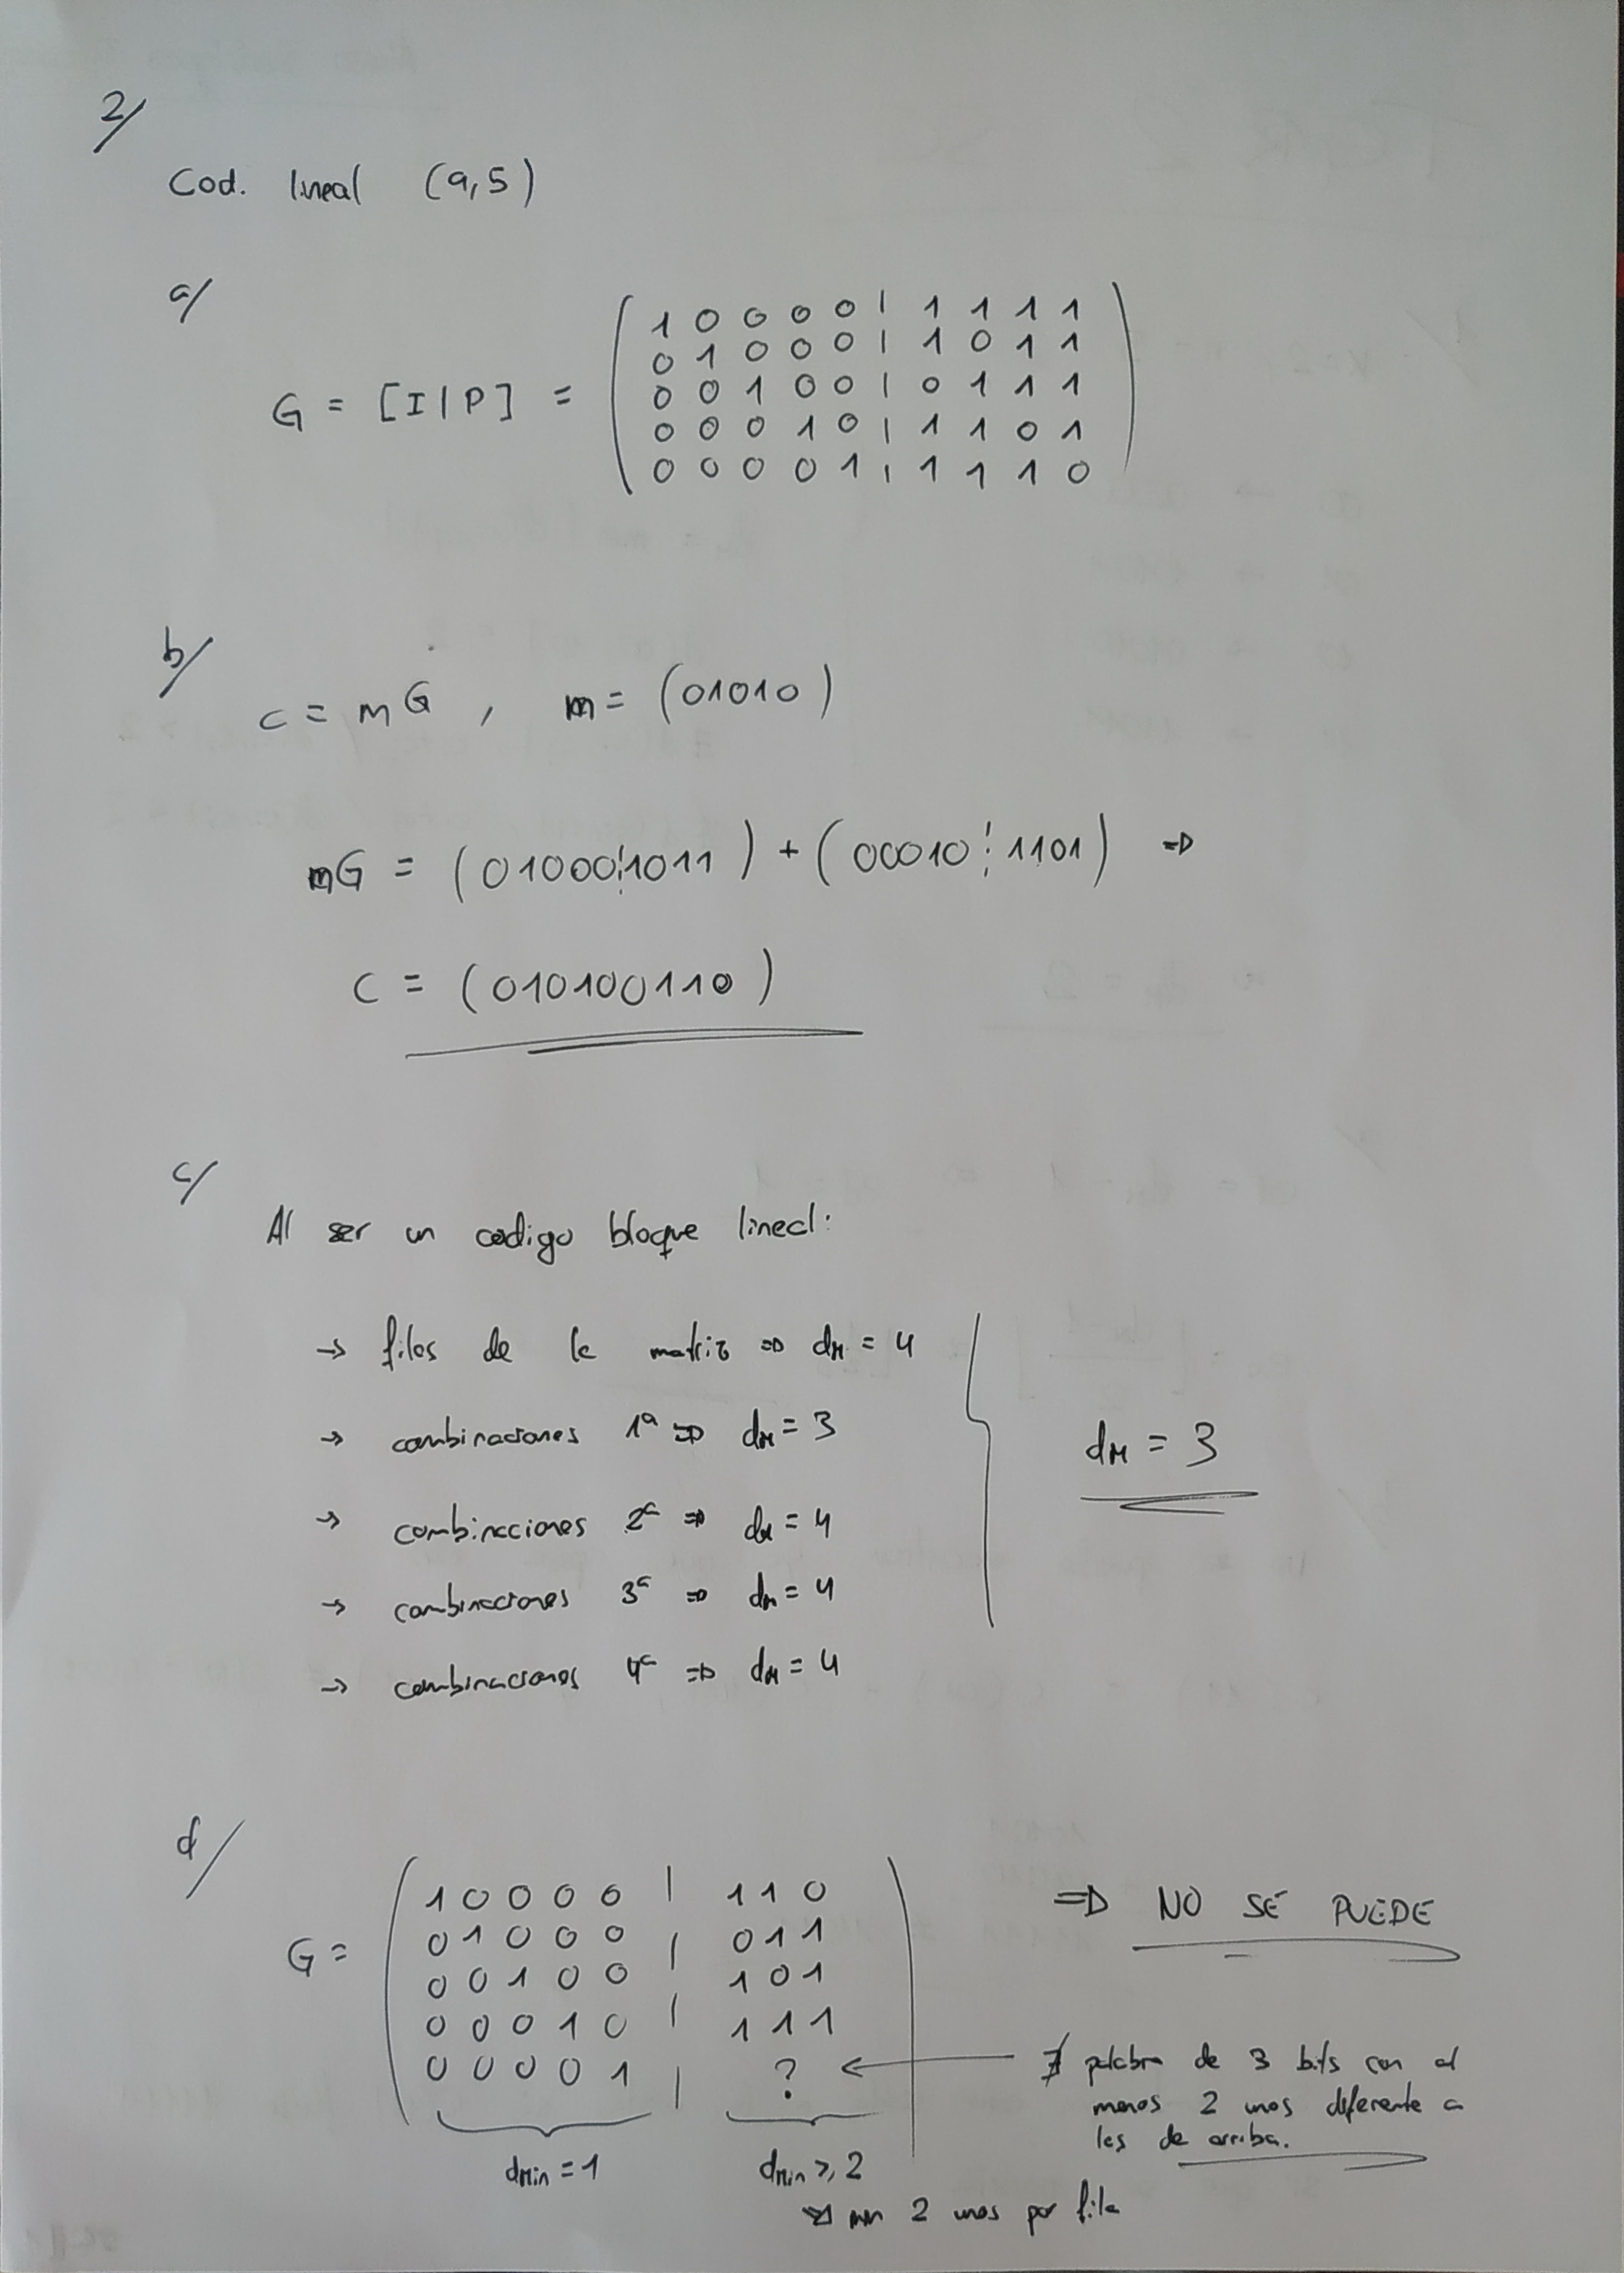 2/
Cod. lineal (9,5)
a/
G = [I|P] =
1 0 0 0 0 | 1 1 1 1
0 1 0 0 0 | 1 0 1 1
0 0 1 0 0 | 0 1 1 1
0 0 0 1 0 | 1 1 0 1
0 0 0 0 1 | 1 1 1 0
b/
c = mG , m = (01010)
mG = (01000¦1011) + (00010¦1101) ⇒
C = (010100110)
c/
Al ser un codigo bloque lineal:
→ filas de la matriz ⇒ dM = 4
→ combinaciones 1ª ⇒ dM = 3
→ combinaciones 2ª ⇒ dM = 4
→ combinaciones 3ª ⇒ dM = 4
→ combinaciones 4ª ⇒ dM = 4
dM = 3
d/
G =
1 0 0 0 0 | 1 1 0
0 1 0 0 0 | 0 1 1
0 0 1 0 0 | 1 0 1
0 0 0 1 0 | 1 1 1
0 0 0 0 1 | ?
⇒ NO SE PUEDE
∄ palabra de 3 bits con al
menos 2 unos diferente a
las de arriba.
dmin = 1
dmin ≥ 2
⇒ min 2 unos por fila